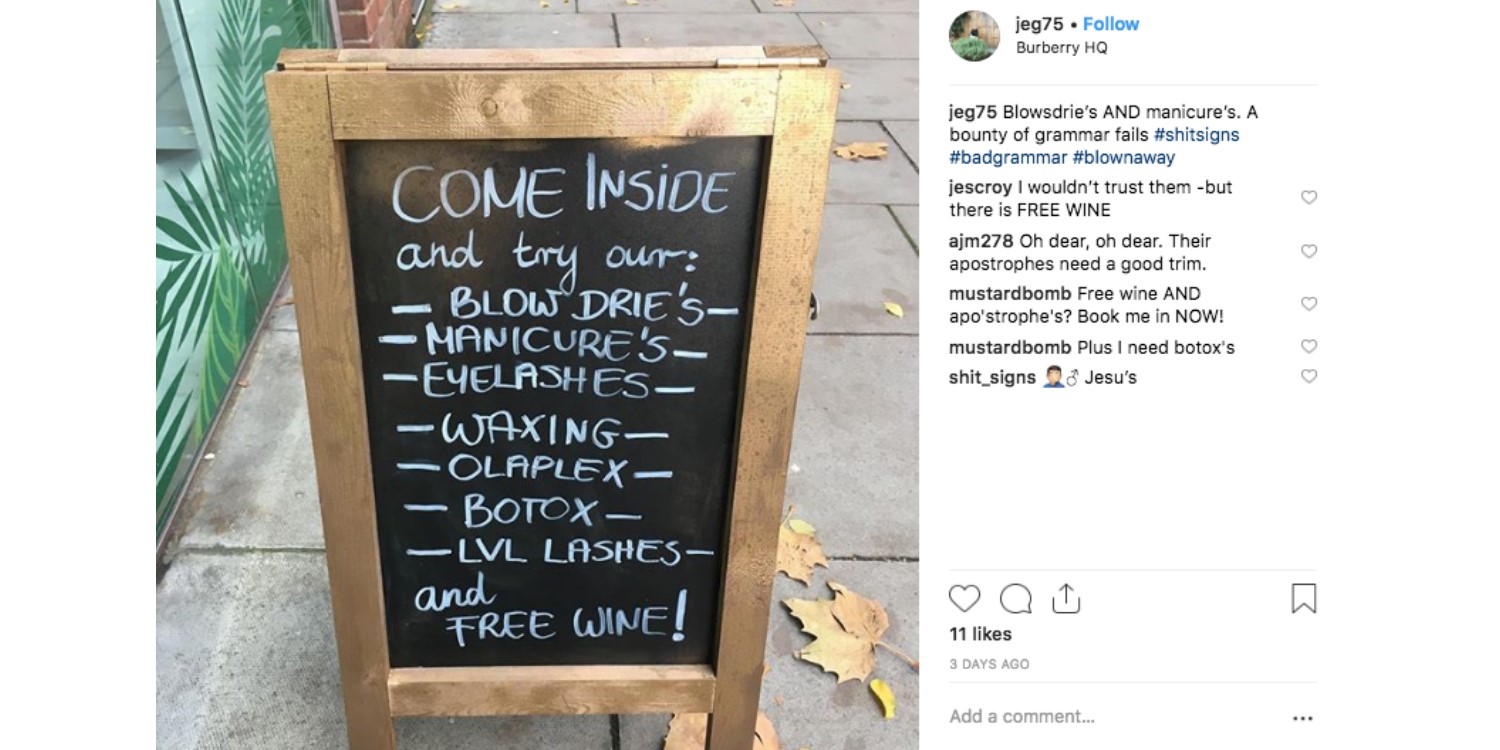 COME INSiDE
and try our:
— BLOW DRIE'S —
— MANICURE'S —
— EYELASHES —
— WAXING —
— OLAPLEX —
— BOTOX —
— LVL LASHES —
and
FREE WINE!
jeg75 • Follow
Burberry HQ
jeg75 Blowsdrie's AND manicure's. A
bounty of grammar fails #shitsigns
#badgrammar #blownaway
jescroy I wouldn't trust them -but
there is FREE WINE
ajm278 Oh dear, oh dear. Their
apostrophes need a good trim.
mustardbomb Free wine AND
apo'strophe's? Book me in NOW!
mustardbomb Plus I need botox's
shit_signs 🤦🏻♂ Jesu's
11 likes
3 DAYS AGO
Add a comment...